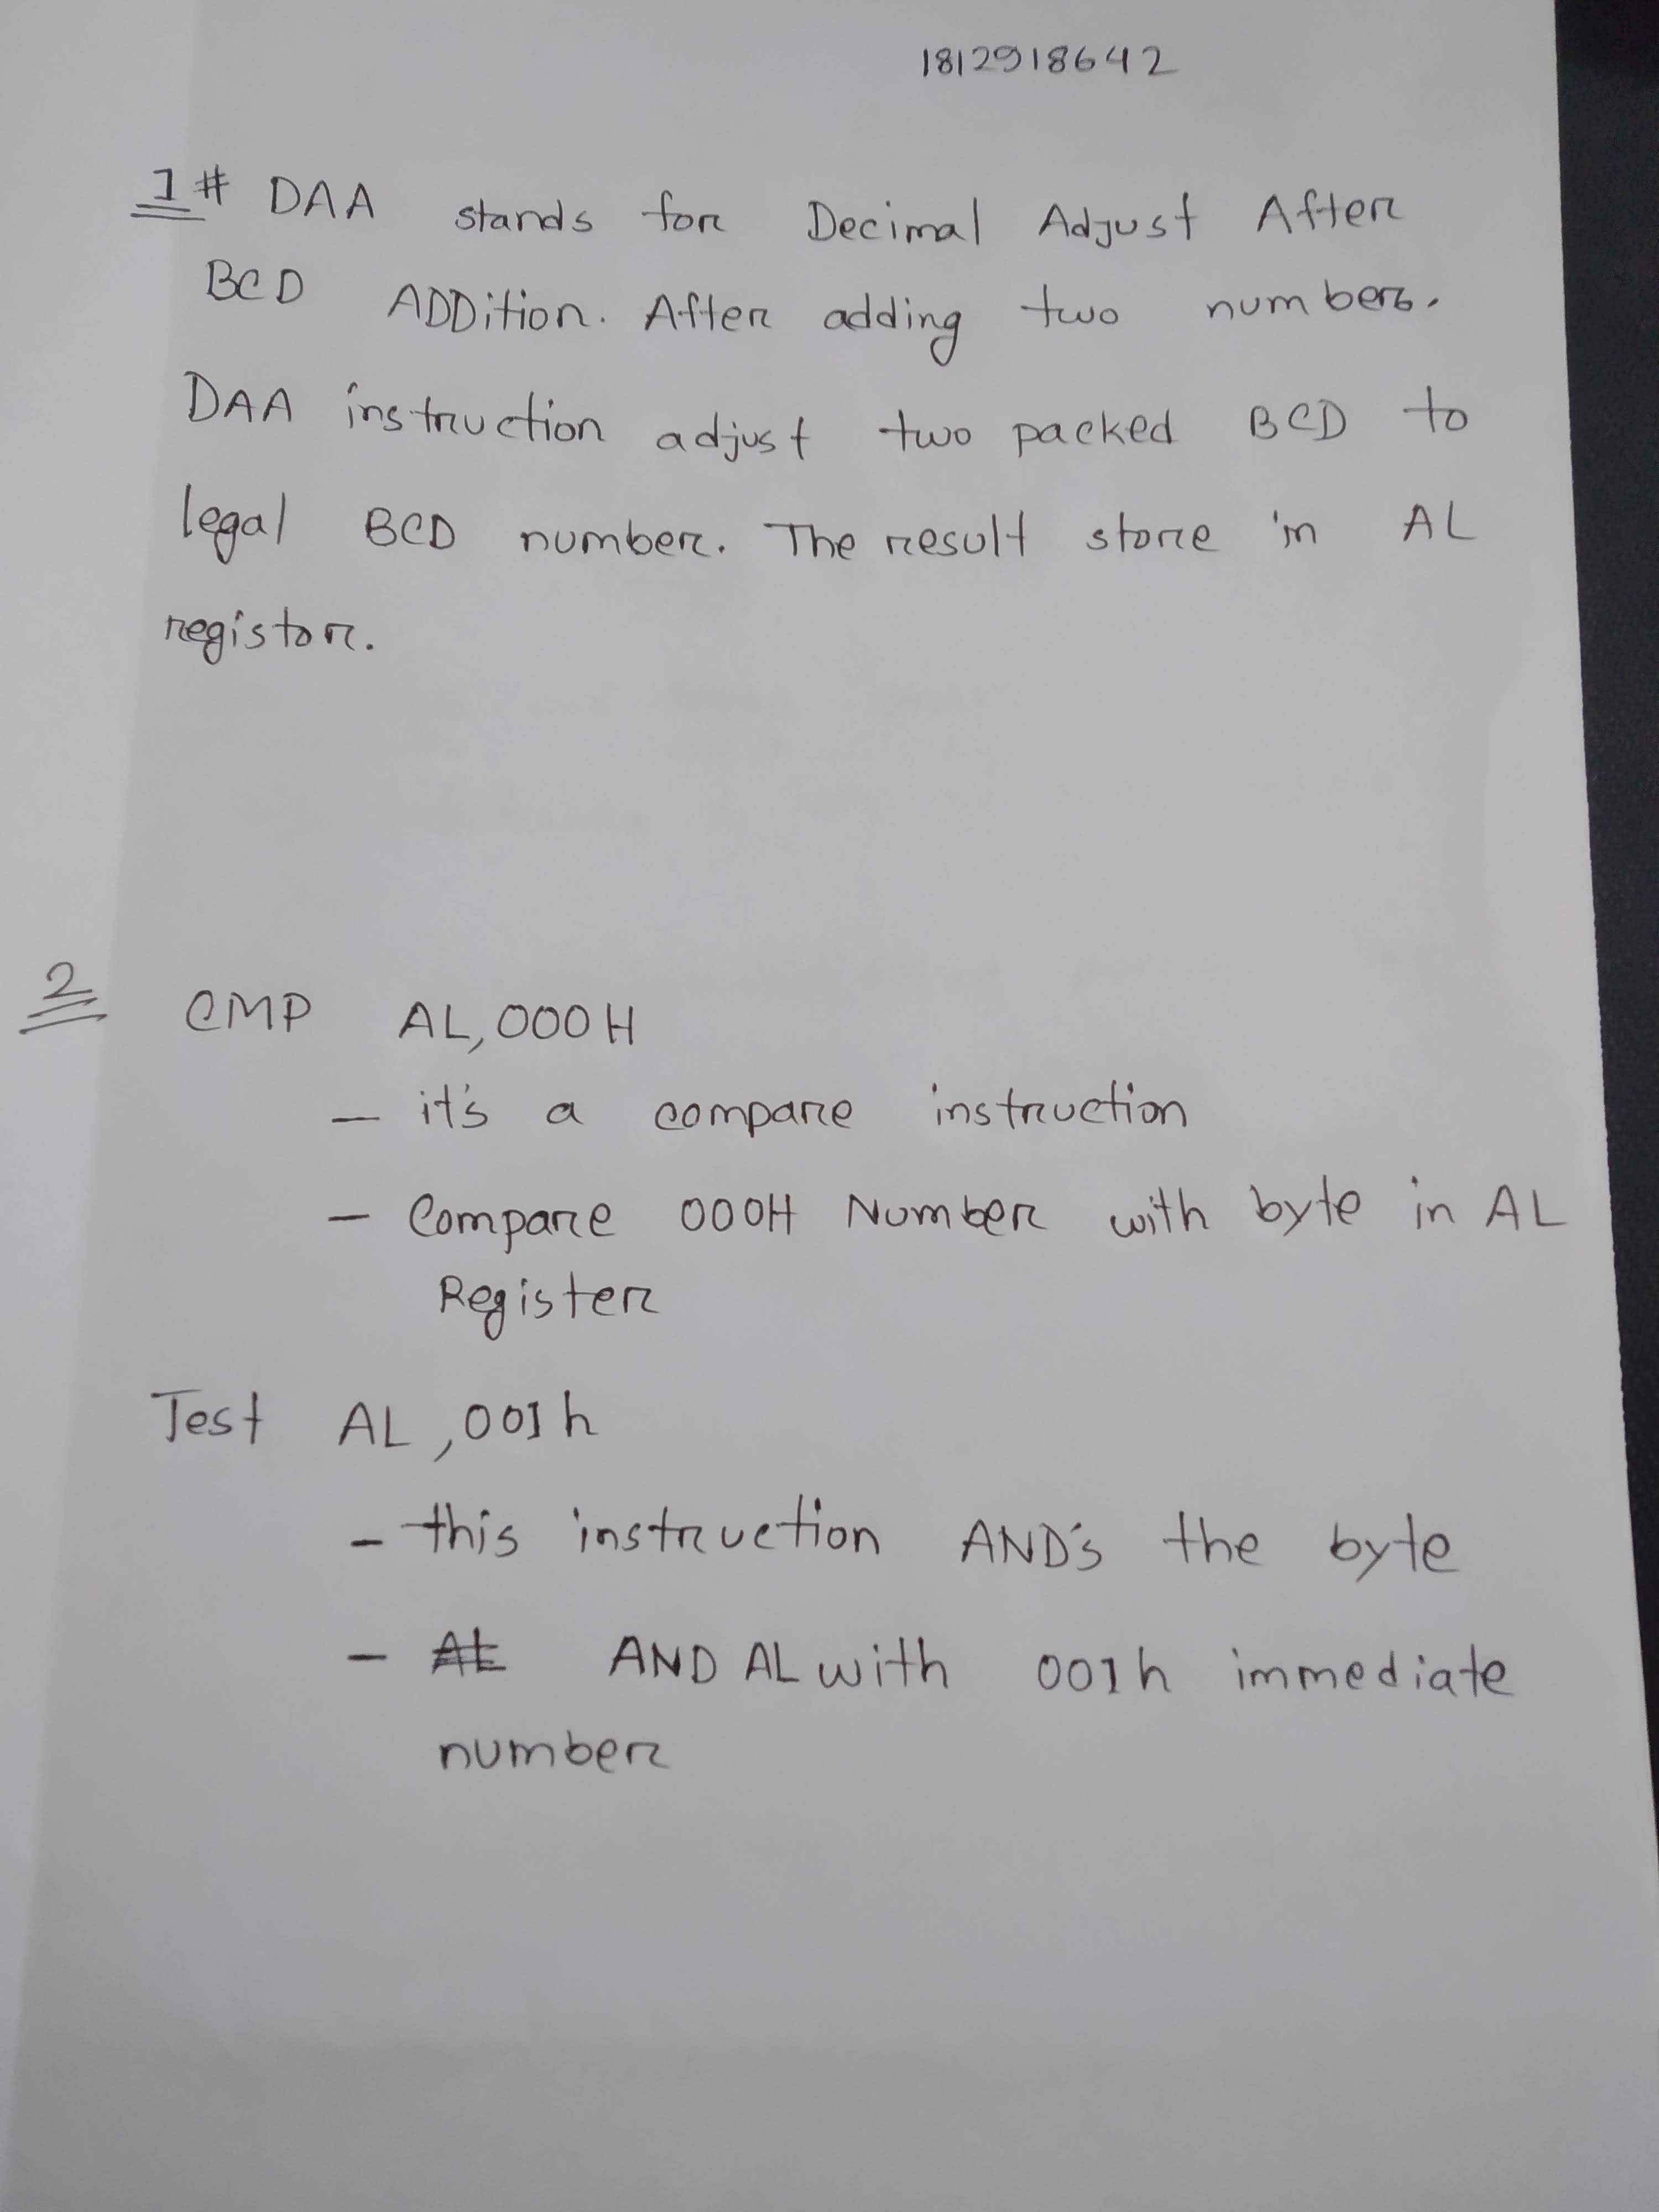 1812918642
1# DAA stands for Decimal Adjust After
BCD ADDition. After adding two numbers.
DAA instruction adjust two packed BCD to
legal BCD number. The result store in AL
registor.
2 CMP AL,000H
- it's a compare instruction
- Compare 000H Number with byte in AL
Register
Test AL,001h
- this instruction AND's the byte
- AL AND AL with 001h immediate
number